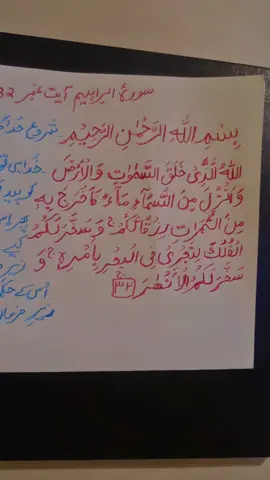 سورۃ ابراہیم آیت نمبر 32
بِسْمِ اللهِ الرَّحْمٰنِ الرَّحِيْمِ
شروع
اَللّٰهُ الَّذِيْ خَلَقَ السَّمٰوٰتِ وَ الْاَرْضَ
وَ اَنْزَلَ مِنَ السَّمَآءِ مَآءً فَاَخْرَجَ بِهٖ
مِنَ الثَّمَرٰتِ رِزْقًا لَّكُمْ ۚ وَ سَخَّرَ لَكُمُ
الْفُلْكَ لِتَجْرِيَ فِي الْبَحْرِ بِاَمْرِهٖ ۚ وَ
سَخَّرَ لَكُمُ الْاَنْهٰرَ ۳۲
اس کے